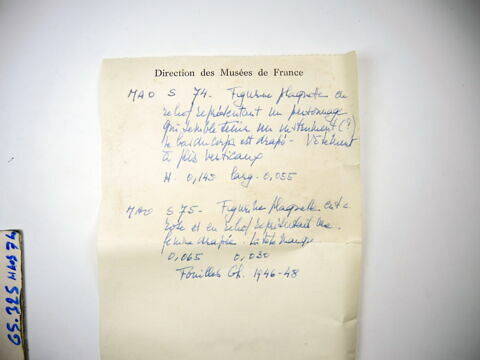 Direction des Musées de France
MAO S 74. Figurine plaquette en
relief représentant un personnage
qui semble tenir un instrument (?)
le bas du corps est drapé - Vêtement
à plis verticaux
H. 0,145 larg. 0,055
MAO S 75 - Figurine plaquette
et en relief représentant une
femme drapée. La tête manque
0,065 0,030
Fouilles Gh. 1946-48
GS. 325